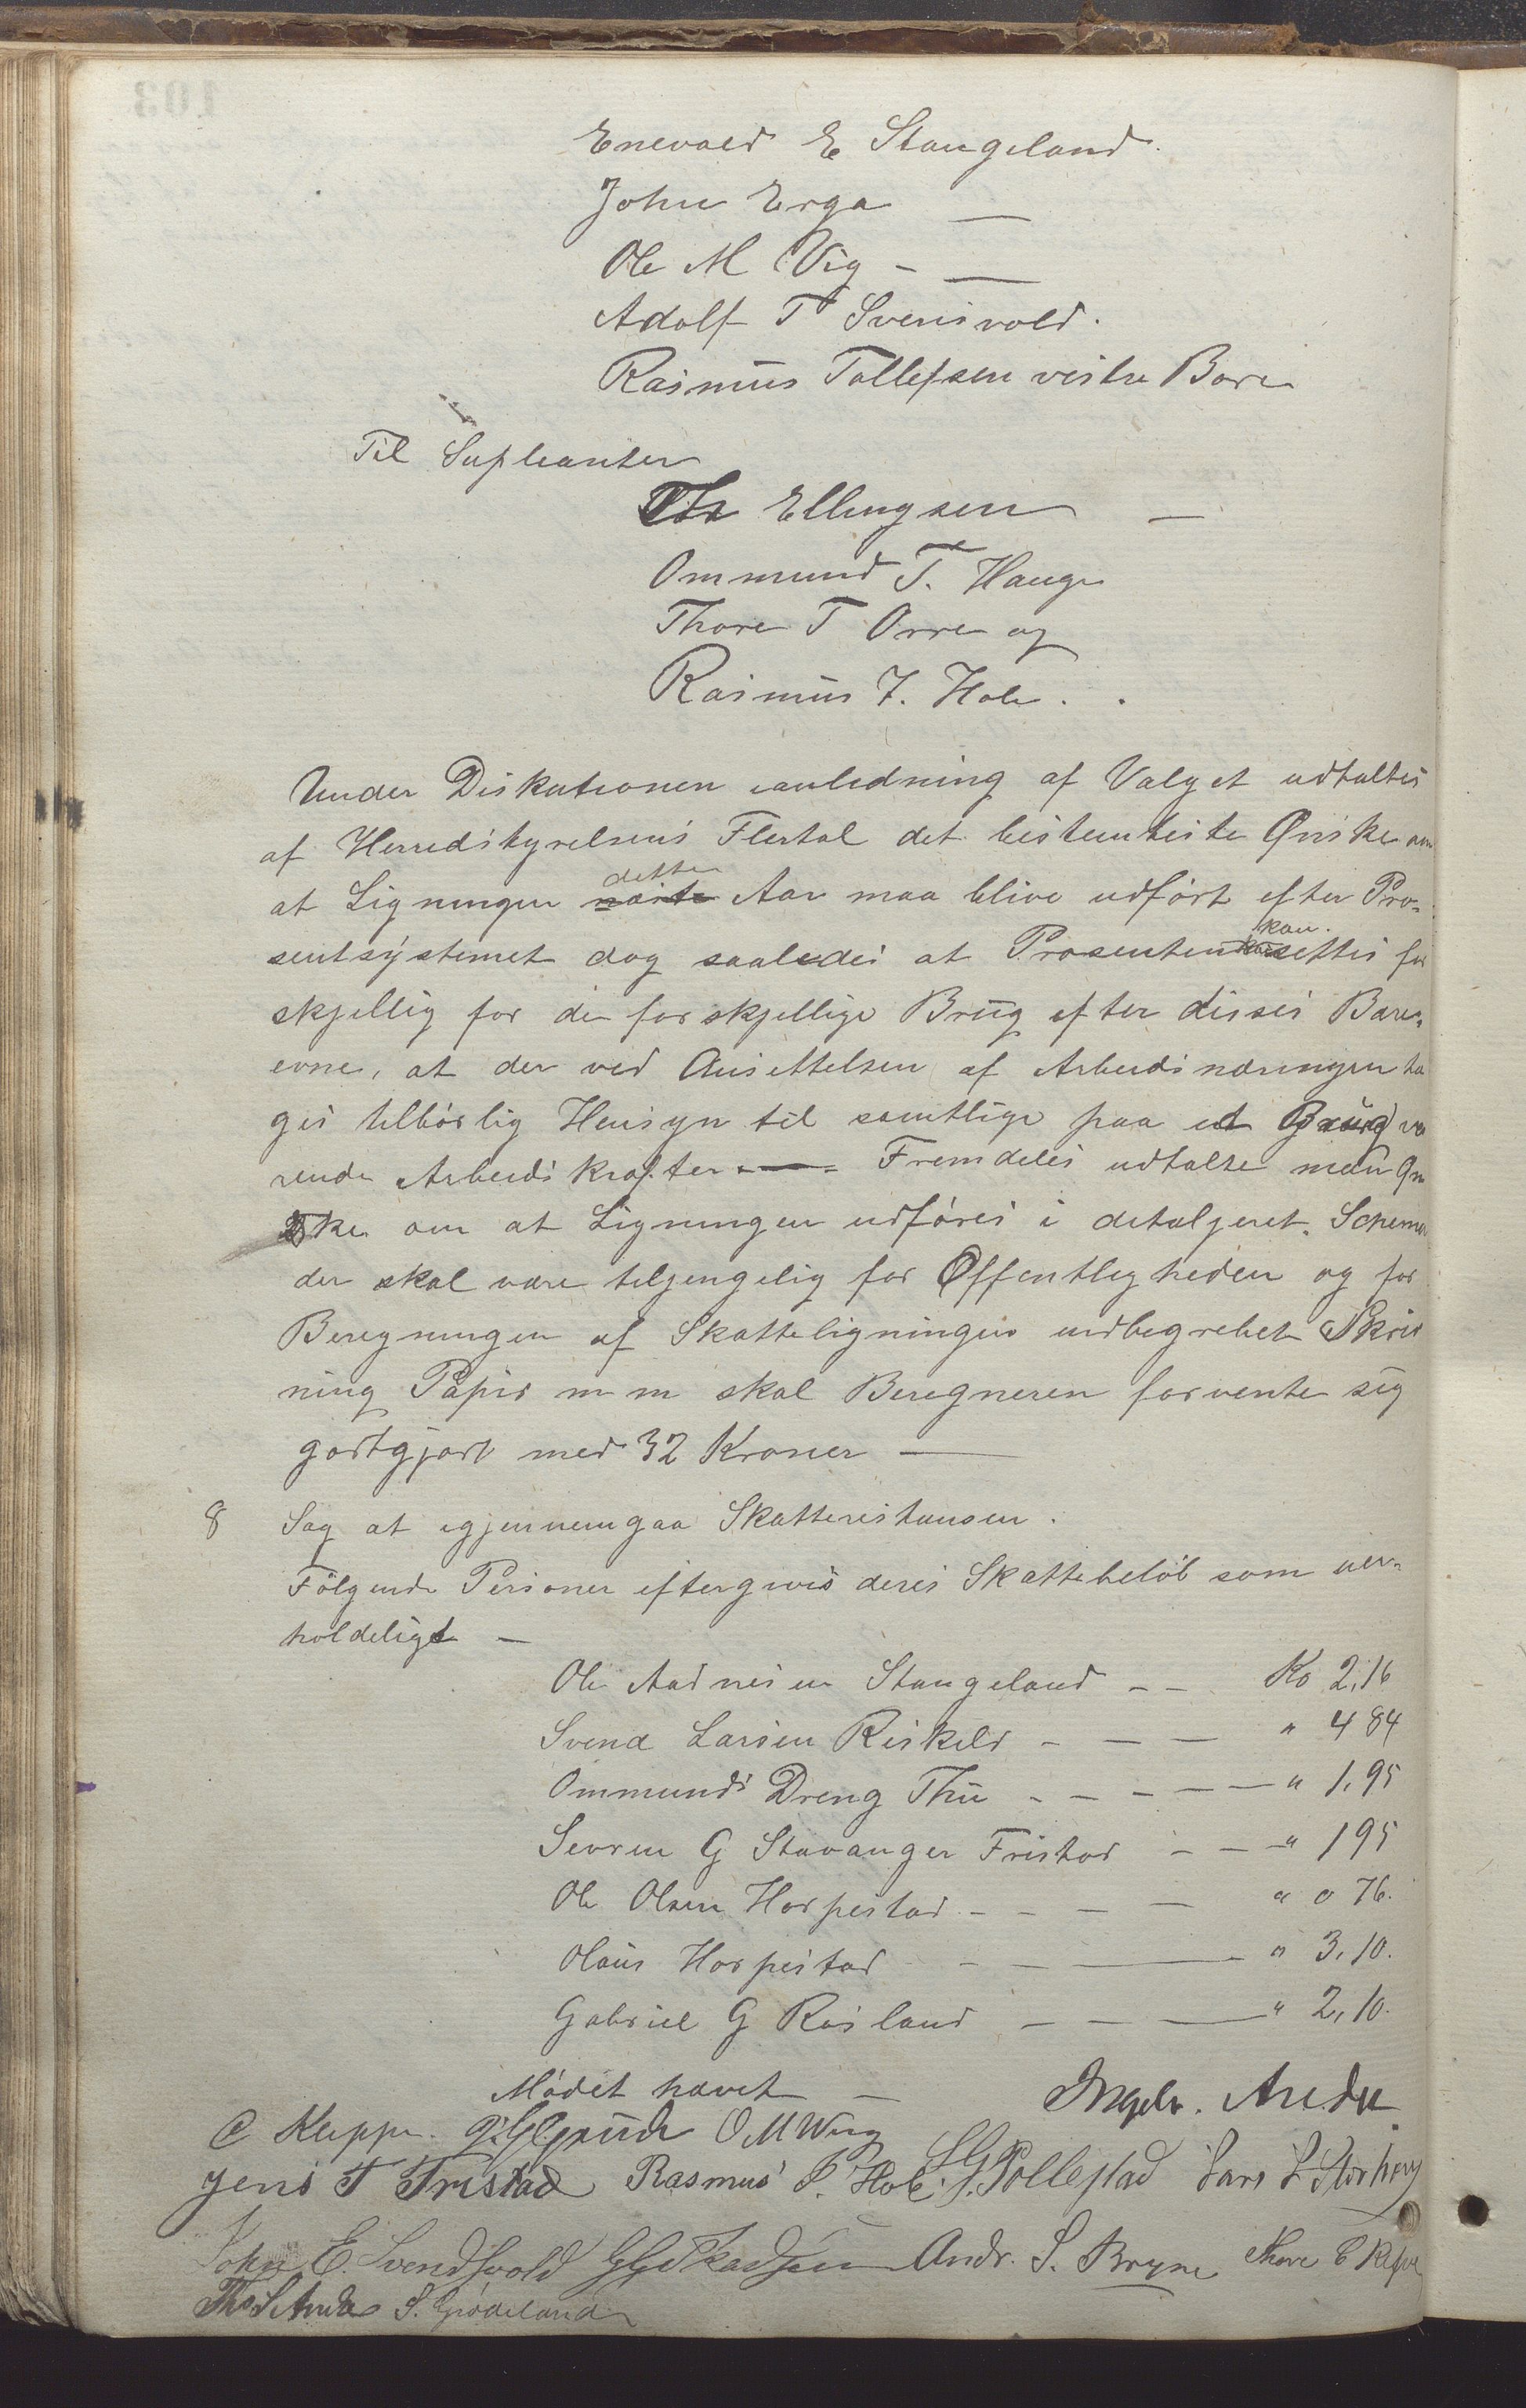 Enevald E Stangeland.
John Erga —
Ole M Vig - —
Adolf T Svensvold.
Rasmus Tollefsen vestre Bore
Til Supleanter
Th Ellingsen —
Ommund T. Hauge
Thore T Orre og
Rasmus J. Hole . .
Under Diskutionen ianledning af Valget udtaltes
af Herredstyrelsens Flertal det bestemteste Ønske om
at Ligningen næste dette Aar maa blive udført efter Pro-
sentsystemet dog saaledes at Prosenten kan settes for
skjellig for de forskjellige Brug efter disses Bære-
evne, at der ved Ansettelsen af Arbeidsnæringen ta
ges tilbørlig Hensyn til samtlige paa et Brug væ
rende Arbeidskrafter — Fremdeles udtalte man Øn
ske om at Ligningen udføres i detaljeret Schema
der skal være tilgjengelig for Offentligheden og for
Beregningen af Skatteligningen indbegrebet Skriv
ning Papir m m skal Beregneren forvente sig
godtgjort med 32 Kroner —
8 Sag at igjennemgaa Skatterestansen.
Følgende Personer eftergives deres Skattebeløb som uer-
holdeligt —
Ole Aadnesen Stangeland - - Kr 2,16
Svend Larsen Reskeld - — — " 4 84
Ommunds Dreng Thu - - - — " 1,95
Sevren G Stavanger Fristad - - - " 1 95
Ole Olsen Horpestad - - - — " 0 76.
Olaus Horpestad - - — " 3,10.
Gabriel G Rosland - - — " 2,10.
Mødet hævet —
Ingebr. Anda
C Kleppe. O M Wiig
Jens T Fristad Rasmus J. Hole. S. G. Pollestad Lars L
John E. Svendsvold Andr. S. Bryne Thore
Ths S Anda S. Grødeland